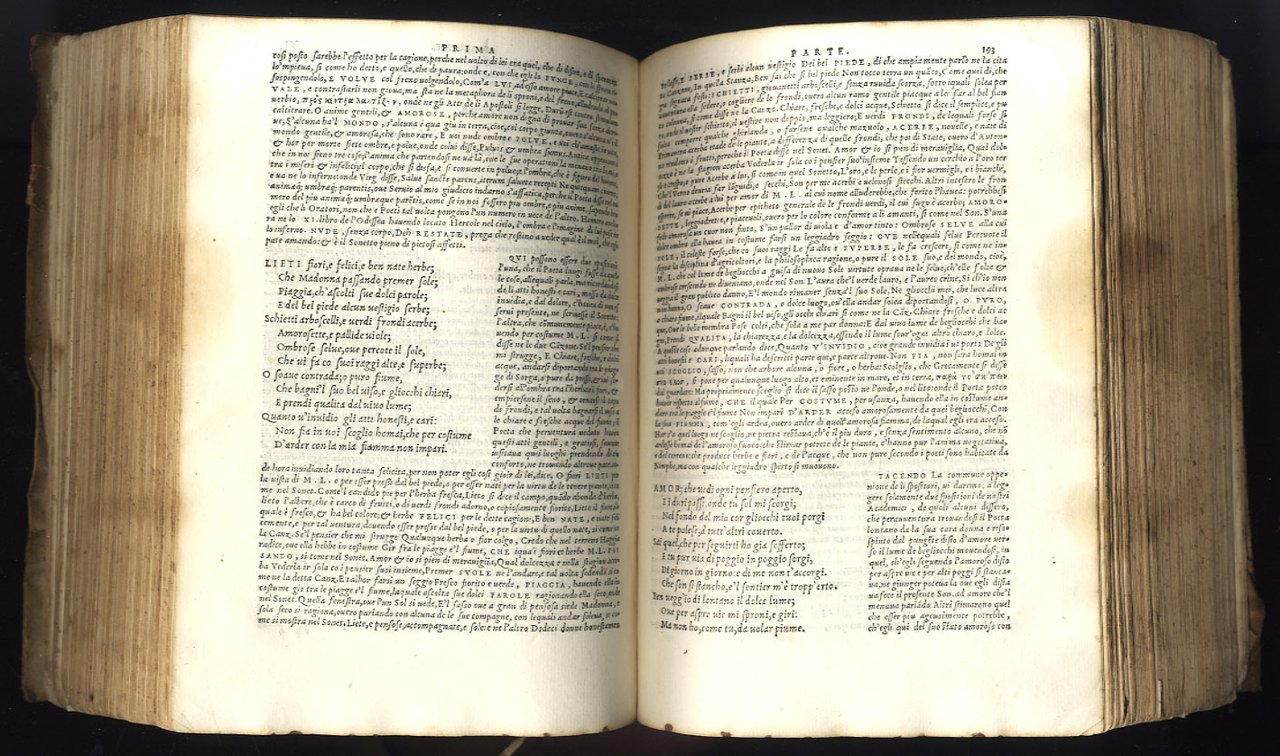 PRIMA
rosi posto sarebbe l'effetto per la cagione, perche nel volto di lei era quel, che di disen, e di speranza
lo'mpieua, si come ho detto, e quello, che di paura: onde e, con che egli lo PVNGE,
sospingendolo, E VOLVE col freno uolgendolo. Com'a LVI, ad esso amore piace, E calcitrar non
VALE, e contrastarli non gioua, ma sta ne la metaphora de li sproni, e del freno, alludendo al
uerbio, πρὸς κέντρα λακτίζειν, onde ne gli Atti de li Apostoli si legge, Durum est contra stimulum
calcitrare. O anime gentili, & AMOROSE, perche amore non degna di prouar sua forza
ue, S'alcuna ha'l MONDO, s'alcuna è qua giu in terra, cioe, col corpo giunta,
mondo gentile, & amorosa, che sono rare, E uoi nude ombre e POLVE, e uoi
& hor per morte siete ombre, e polue, onde colui disse, Puluis & umbra sumus.
che in noi sieno tre cose, l'anima che partendosi ne ua là, oue le sue operationi la
tra i miseri & infelici, il corpo, che si disfa, e si conuerte in polue, e l'ombra, che è
e ua ne lo inferno: onde Virg. disse, Salue sancte parens, iterum saluete recepti Ne quicquam cineres,
animaq; umbraq; parentis, oue Seruio al mio giudicio indarno s'affatica, perche il Poeta disse nel
mero del piu animaq; umbraque parētis, come se in noi fossero piu ombre, e piu anime,
egli che li Oratori, non che e Poeti tal uolta pongono l'un numero in uece de l'altro. Homero anchora
ra ne lo XI. libro de l'Odissea hauendo locato Hercole nel cielo, l'ombra e l'imagine di lui
lo inferno. NVDE, senza corpo, Deh RESTATE, prega che restino a ueder qual è il mal,
pate amando: & è il Sonetto pieno di pietosi affetti.
LIETI fiori, e felici, e ben nate herbe;
Che Madonna passando premer sole;
Piaggia, ch'ascolti sue dolci parole;
E del bel piede alcun vestigio serbe;
Schietti arboscelli, e uerdi frondi acerbe;
Amorosette, e pallide uiole;
Ombrose selue, oue percote il sole,
Che ui fa co suoi raggi alte, e superbe;
O soaue contrada; o puro fiume,
Che bagni'l suo bel uiso, e gliocchi chiari,
E prendi qualita dal viuo lume;
Quanto u'inuidio gli atti honesti, e cari:
Non fia in voi scoglio homai, che per costume
D'arder con la mia fiamma non impari.
QVI possono essere due
l'una, che il Poeta lungi
le cose, allequali parla, ma
dè li atti honesti e cari, mosso da dolce
inuidia, e dal dolore, c'hauea di non
serui presente, ne scriuesse il Sonetto:
l'altra, che cōmunemente piace, è,
uendo per costume M. L. si come
disse ne le due Cāzone. Se'l pensier che
mi strugge, E Chiare, fresche, e dolci
acque, andarsi diportando tra le piagge
de Sorga,
dersi all'ombra tra l'herba e i fiori, &
empiersene il seno, & ornarsi il capo
di frondi, e tal uolta bagnarsi il uiso a
le chiare e fresche acque del fiume; il
Poeta che peruentura ueduto hauea
questi atti gentili, e gratiosi,
usitaua quei luoghi prendendo
conforto, ne trouando altroue pace
de hora inuidiando loro tanta felicita, per non poter egli così gioir di lei, dice, O fiori LIETI per
la uista di M. L. o per esser presso dal bel piede, o per esser nati per la uirtu de le tenere piante,
me nel Sonet. Come'l candido pie per l'herba fresca, Lieto si dice il campo, quādo abonda d'herba,
lieto l'albero, che è carco di frutti, o di uerdi frondi adorno, e copiosamente fiorito; Lieto il fiore,
quale è fresco, & ha bel colore: & herbe FELICI per le dette cagioni; E ben NATE, e nate
cemente, e per tal ventura, douendo esser presse dal bel piede, o per la uirtu di quello nate, si come
la Canz. Se'l pensier che mi strugge Qualunque herba o fior colgo, Credo che nel terreno Haggia
radice, oue ella hebbe in costume Gir fra le piagge e'l fiume, CHE iqua i fiori et herbe M. L. PAS
SANDO, si come nel Sonet. Amor & io si pien di merauiglia, Qual dolcezza è nella stagion acer
ba Vederla ir sola co i pensier suoi insieme, Premer SVOLE ne l'andare, e tal uolta sedendosi
me ne la detta Canz. E talhor farsi un seggio Fresco fiorito e uerde, PIAGGIA, hauendo ella in
costume gir tra le piagge e'l fiume, laquale ascolta sue dolci PAROLE ragionando ella seco, onde
nel Sonet. Quella fenestra, oue l'un Sol si uede, E'l sasso oue a gran di pensosa siede Madonna, e
sola seco si ragiona, ouero parlando con alcuna de le sue compagne, con lequali andar soleua,
me si mostra nel Sonet. Liete, e pensose, accompagnate, e sole: e ne l'altro Dodeci donne honestamen
PARTE. 193
te lasse, E SERBE, e serbi alcun uestigio Del bel PIEDE, di che ampiamente parlo ne la cita
ta Canzone. In quella Stanza, Ben sai che sì bel piede Non tocco terra un quāco, Come quei di, che
gia segnata fosti: SCHIETTI, giouanetti arboscelli, e senza ruuida scorza, sotto iquali solea per
auentura ella sedere, o cogliere de le frondi, ouero alcun ramo gentile piacque a lei far al bel fian
co colonna, si come disse ne la Cāzo. Chiare, fresche, e dolci acque, Schietto si dice il semplice, e pu
ro, schietto, il uestire non doppio, ma leggiero; E uerdi FRONDI, de lequali forse si
solea comporre qualche ghirlanda, o farsene qualche mazzuolo, ACERBE, nouelle, e nate di
Primauera
no rendono i frutti, perche il Poeta disse nel Sonet. Amor & io si pien di merauiglia, Qual dol-
cezza è ne la stagion acerba Vederla ir sola co i pensier suo'insieme Tessendo un cerchio a l'oro ter
so e crespo, ouer Acerbe a lui, si come in quel Sonetto, L'oro, e le perle, e i fior vermigli, e i bianchi,
Che'l Verno deuria far lāguidi, e secchi, Son per me acerbi e uelenosi stecchi. Altri intesero le fron-
di del lauro acerbe a lui per amor di M. L. al cui nome alluderebbe, che ferito l'hauea: potrebbesi
esporre, se ui piace, Acerbe per epitheto generale de le frondi uerdi, il cui sugo è acerbo; AMORO-
SETTE, leggiadrette, e piaceuoli, ouero per lo colore conforme a li amanti, si come nel Son. S'una
fede amorosa un cuor non finto, S'un pallor di uiola e d'amor tinto: Ombrose SELVE alla cui
dolce ombra ella hauea in costume farsi un leggiadro seggio: OVE nellequali selue Percuote il
SOLE, il celeste forse, che co suoi raggi Le fa alte e SVPERBE, le fa crescere, si come ne in-
segna la disciplina d'agricoltori, e la philosophica ragione, o pure il SOLE suo, e del mondo, cioè,
M. L. che col lume de begliocchi a guisa di nuouo Sole virtute opraua ne le selue, ch'elle folte &
ombrose crescendo ne diuentano, onde nel Son. L'aura che'l uerde lauro, e l'aureo crine, Si ch'io non
ueggia il gran publico danno, E'l mondo rimaner senza'l suo Sole, Ne gliocchi miei, che luce altra
non hanno, O soaue CONTRADA, o dolce luogo, ou'ella andar solea diportandosi, O PVRO,
e chiaro fiume, ilquale Bagni il bel uiso, e gli occhi chiari si come ne la Cāz. Chiare fresche e dolci ac-
que, Oue le belle membra Pose colei, che sola a me par donna: E dal viuo lume de begliocchi che ba-
gni, Prendi QVALITA, la chiarezza e la dolcezza, essendo il lume sour'ogni altro chiaro, e dolce.
A queste cose adunque parlando dice, Quanto V'INVIDIO, cioè grande inuidia i ui porto De gli
atti honesti e CARI, liquali ha descritti parte qui, e parte altroue. Non FIA, non sarà homai in
uoi SCOGLIO, sasso, non che arbore alcuna, o fiore, o herba: Scoglio, che Grecamente si disse
si pone per qualunque luogo alto, et eminente in mare, et in terra,
da guardare: Ma propriamente scoglio si dice il sasso posto ne l'onde, o nel lito: onde il Poeta potè
hauer rispetto al fiume, CHE il quale Per COSTVME, per usanza, hauendo ella in costume an-
dar tra le piagge e'l fiume Non impari D'ARDER acceso amorosamente da quei begliocchi, Con
la sua FIAMMA, com'egli ardea, ouero arder di quell'amorosa fiamma, de laqual egli era acceso.
Hora s'a quei luoghi ne scoglio, ne pietra restaua, ch'è il piu duro, e senza sentimento alcuno, che nō
ardesse homai de l'amoroso fuoco: che stimar potrete de le piante, c'hanno pur l'anima uegetatiua,
e del terreno: che produce herbe e fiori, e de l'acque, che non pure secondo i poeti sono habitate da
Nimphe, ma con qualche leggiadro spirto si muouono.
AMOR; che uedi ogni pensiero aperto,
E i duri passi, onde tu sol mi scorgi;
Nel fondo del mio cor gliocchi tuoi porgi
A te palese, a tutt'altri couerto.
Sai quel, che per seguirti ho gia sofferto;
E tu pur via di poggio in poggio sorgi,
Di giorno in giorno: e di me non t'accorgi.
Che son sì stancho, e'l sentier m'è tropp'erto.
Ben ueggio di lontano il dolce lume;
Oue per aspre vie mi sproni, e giri:
Ma non ho, come tu, da volar piume.
TACENDO La commune oppe-
nione de li spositori, ui daremo, a leg-
gere solamente due spositioni de nostri
Academici, de quali alcuni dissero,
che peruentura trouādosi il Poeta
lontano da la sua cara donna e riso-
spinto dal pungēte disio d'amore ver-
so il lume de begliocchi mouendosi, in
quel, ch'egli seguendo l'amoroso disio
per aspre vie e per alti poggi si stanca-
ua, ne giunger poteua là oue egli disia
ua fece il presente Son. ad amore che'l
menaua parlādo. Altri stimarono quel
che esser piu ageuolmente potrebbe,
ch'egli qui del suo stato amoroso con